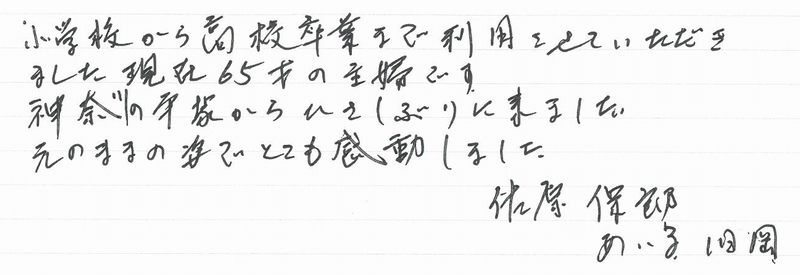 小学校から高校卒業まで利用させていただき
ました 現在65才の主婦です
神奈川の平塚からひさしぶりに来ました
元のままの姿でとても感動しました
佐原 保郎
旧岡